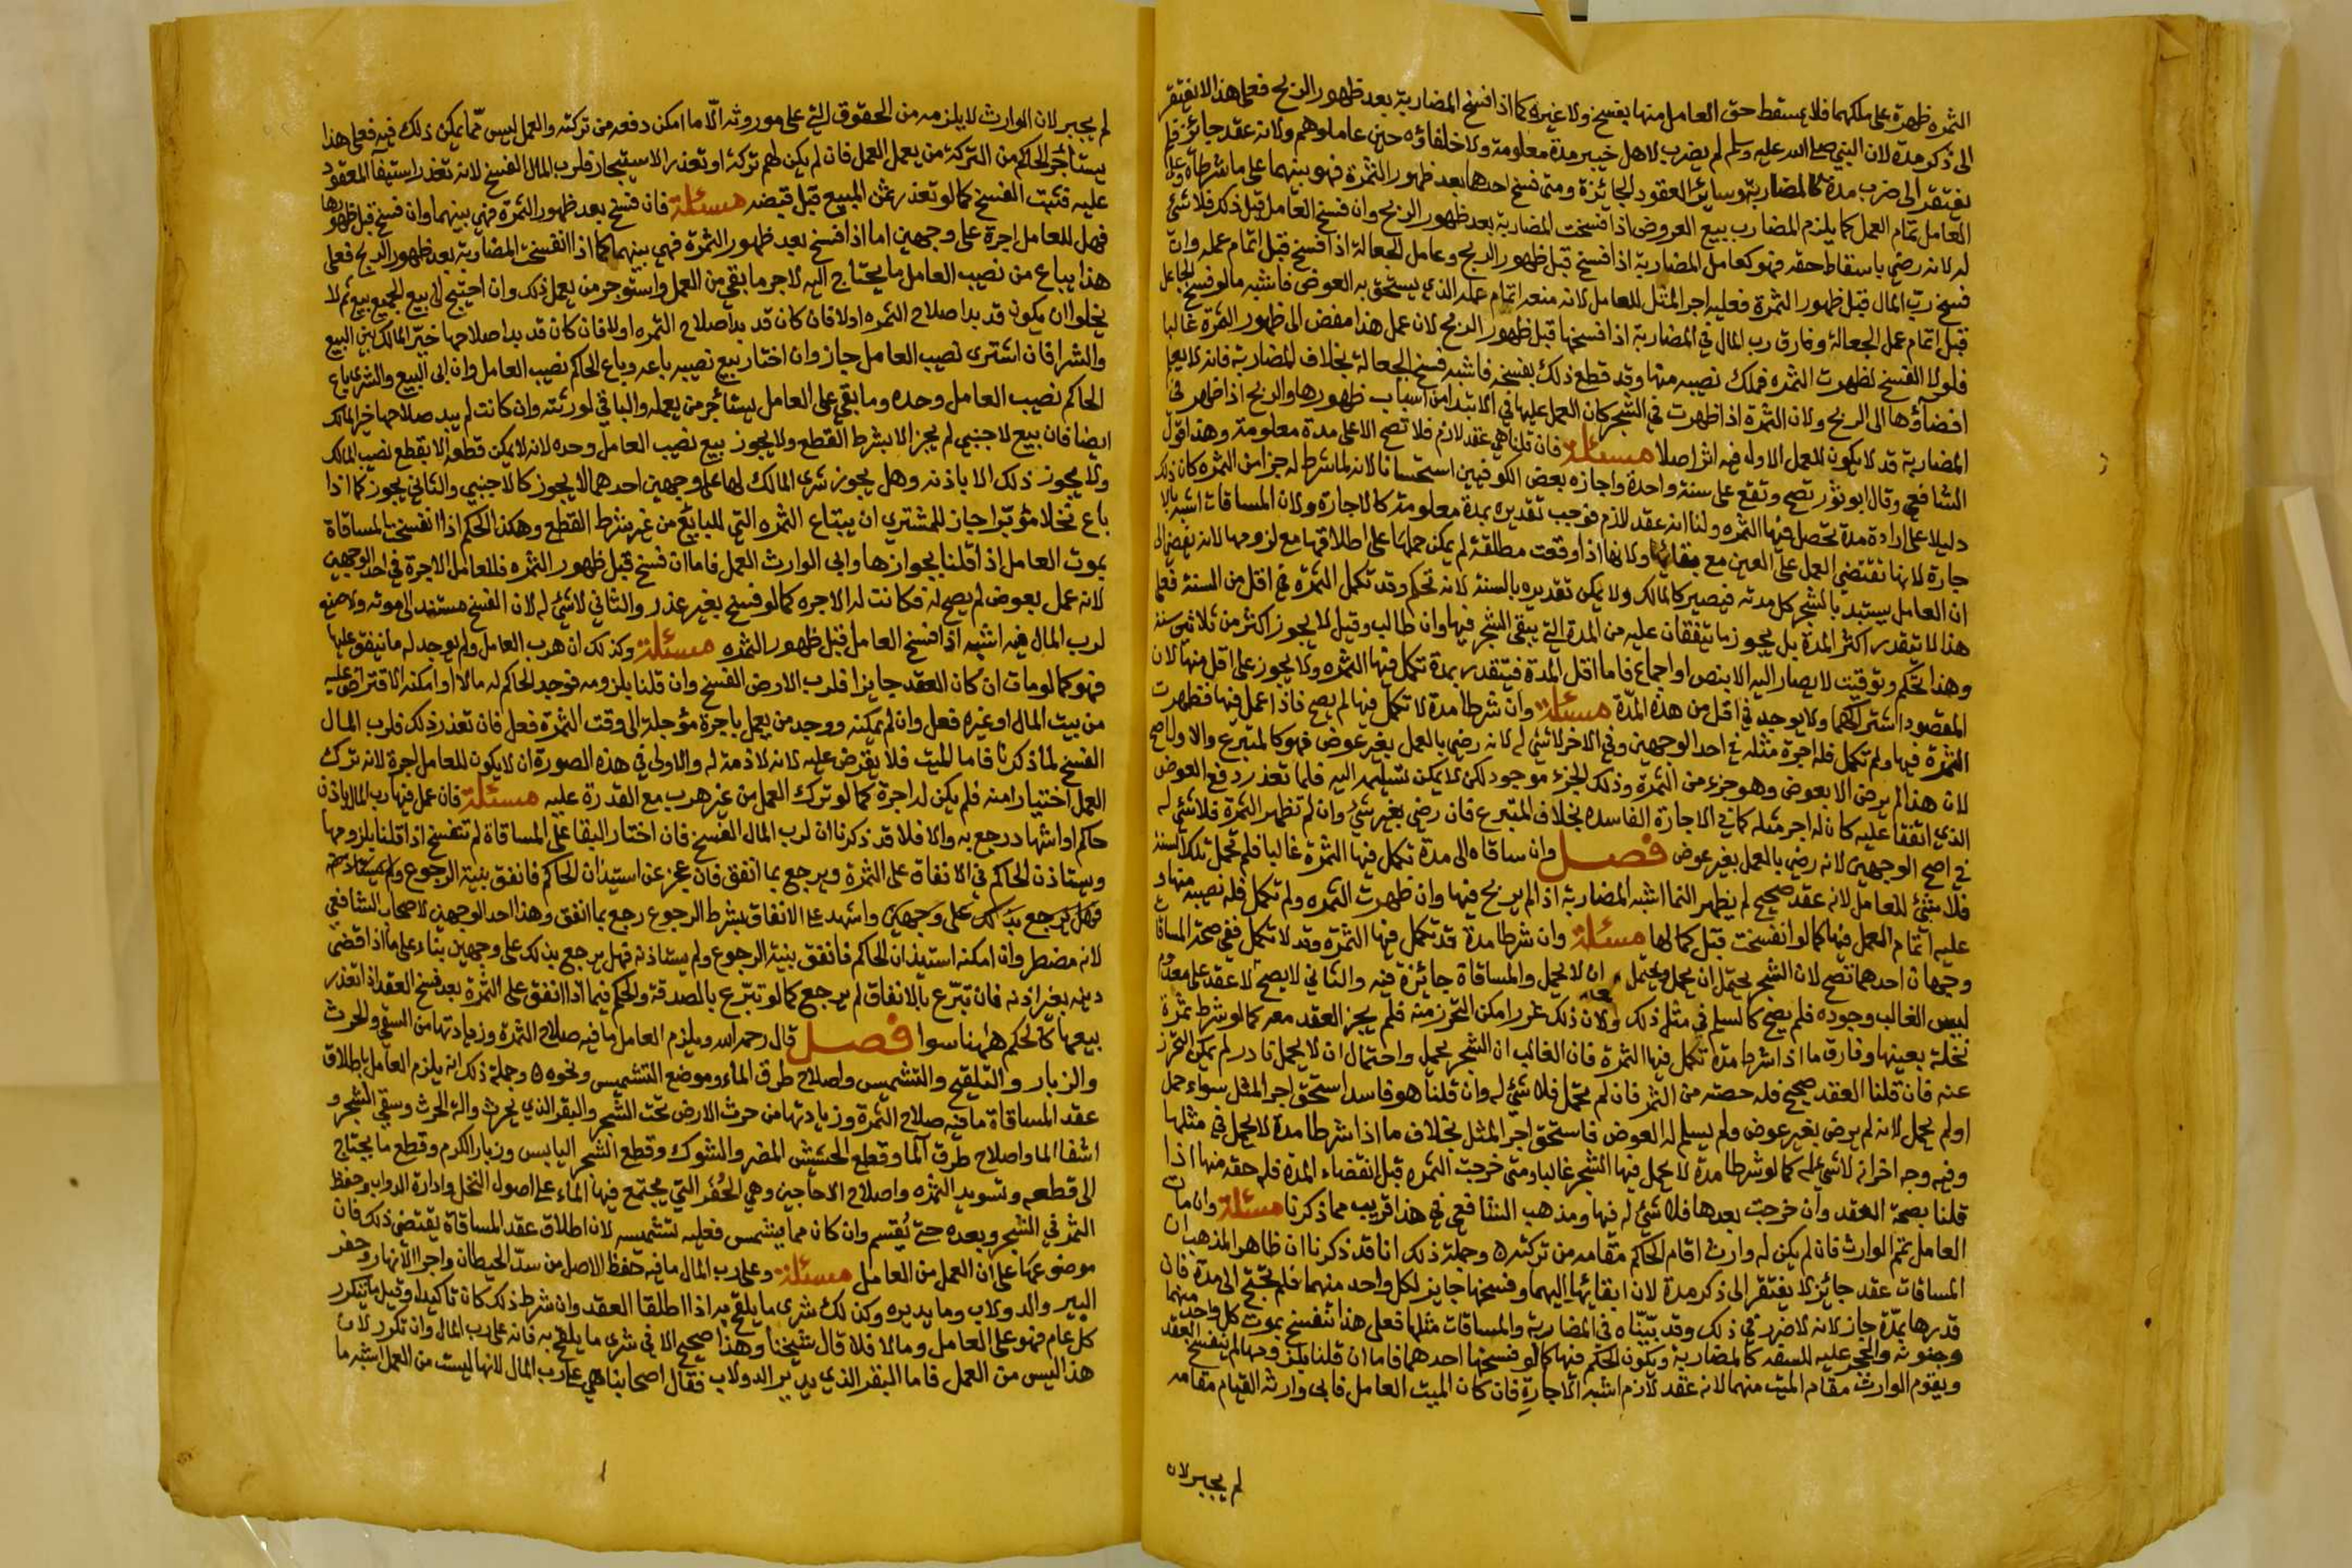 الثمرة ظهرة على ملكهما فلا يسقط حق العامل منها بفسخ ولا غيره كما اذا فسخ المضاربة بعد ظهور الربح فعلى هذا لا يفتقر
الى ذكر مدة لان النبي صلى الله عليه وسلم لم يضرب لاهل خيبر مدة معلومة ولا خلفاؤه حين عاملوهم ولانه عقد جائز فلم
يفتقر الى ضرب مدة كالمضاربة وسائر العقود الجائزة ومتى فسخ احدهما بعد ظهور الثمرة فهو بينهما على ما شرطاه وعلى
العامل تمام العمل كما يلزم المضارب ببيع العروض اذا فسخت المضاربة بعد ظهور الربح وان فسخ العامل قبل ذلك فلا شئ
له لانه رضي باسقاط حقه فهو كعامل المضاربة اذا فسخ قبل ظهور الربح وعامل الجعالة اذا فسخ قبل اتمام عمله وان
فسخ رب المال قبل ظهور الثمرة فعليه اجر المثل للعامل لانه منعه اتمام عمله الذي يستحق به العوض فاشبه مالو فسخ الجاعل
قبل اتمام عمل الجعالة وفارق رب المال في المضاربة اذا فسخها قبل ظهور الربح لان عمل هذا مفض الى ظهور الثمرة غالبا
فلولا الفسخ لظهرت الثمره فملك نصيبه منها وقد قطع ذلك بفسخه فاشبه فسخ الجعالة بخلاف المضاربة فانه لا يعلم
افضاؤها الى الربح ولان الثمرة اذا ظهرت في الشجر كان العمل عليها في الابتدا من اسباب ظهورها والربح اذا ظهر في
المضاربة قد لا يكون للعمل الاول فيه اثر اصلا مسئلة فان قلنا هي عقد لازم فلا تصح الا على مدة معلومة وهذا قول
الشافعي وقال ابو ثور تصح وتقع على سنة واحدة واجازه بعض الكوفيين استحسانا لانه لما شرط له جزا من الثمره كان ذلك
دليلا على ارادة مدة تحصل فيها الثمره ولنا انه عقد لازم فوجب تقديره بمدة معلومة كالاجارة ولان المساقات اشبه بالا
جارة لانها تقتضي العمل على العين مع بقائها ولانها اذا وقعت مطلقة لم يمكن حملها على اطلاقها مع لزومها لانه يفضي الى
ان العامل يستبد بالشجر كل مدته فيصير كالمالك ولا يمكن تقديره بالسنة لانه تحكم وقد تكمل الثمرة في اقل من السنة فعلى
هذا لا تتقدر اكثر المدة بل يجوز ما يتفقان عليه من المدة التي يبقى الشجر فيها وان طالت وقيل لا يجوز اكثر من ثلاثين سنة
وهذا تحكم وتوقيت لا يصار اليه الا بنص او اجماع فاما اقل المدة فيتقدر بمدة تكمل فيها الثمره ولا يجوز على اقل منها لان
المقصود اشتراكهما ولا يوجد في اقل من هذه المدة مسئلة وان شرطا مدة لا تكمل فيها لم يصح فاذا عمل فيها فظهرت
الثمرة فيها ولم تكمل فله اجرة مثله في احد الوجهين وفي الاخر لا شئ له لانه رضي بالعمل بغير عوض فهو كالمتبرع والاول اصح
لان هذا لم يرض الا بعوض وهو جزء من الثمرة وذلك الجزء موجود لكن لا يمكن تسليمه اليه فلما تعذر دفع العوض
الذي اتفقا عليه كان له اجر مثله كما في الاجارة الفاسده بخلاف المتبرع فان رضي بغير شئ وان لم تظهر الثمرة فلا شئ له
في اصح الوجهين لانه رضي بالعمل بغير عوض فصل وان ساقاه الى مدة تكمل فيها الثمرة غالبا فلم تحمل تلك السنة
فلا شئ للعامل لانه عقد صحيح لم يظهر النما اشبه المضاربة اذا لم يربح فيها وان ظهرت الثمره ولم تكمل فله نصيبه منها و
عليه اتمام العمل فيها كما لو انفسخت قبل كمالها مسئلة وان شرطا مدة قد تكمل فيها الثمرة وقد لا تكمل ففي صحة المساقاة
وجهان احدهما تصح لان الشجر يحتمل ان يحمل ويحتمل ان لا يحمل والمساقاة جائزة فيه والثاني لا يصح لانه عقد على معدوم
ليس الغالب وجوده فلم يصح كالسلم في مثل ذلك ولان ذلك غرر امكن التحرز منه فلم يجز العقد معه كما لو شرط ثمرة
نخلة بعينها وفارق ما اذا شرطا مدة تكمل فيها الثمرة فان الغالب ان الشجر يحمل واحتمال ان لا يحمل نادر لم يمكن التحرز
عنه فان قلنا العقد صحيح فله حصته من الثمر فان لم تحمل فلا شئ له وان قلنا هو فاسد استحق اجر المثل سواء حمل
اولم يحمل لانه لم يرض بغير عوض ولم يسلم له العوض فاستحق اجر المثل بخلاف ما اذا شرطا مدة لا يحمل في مثلها
وفيه وجه اخر انه لا شئ له كما لو شرطا مدة لا يحمل فيها الشجر غالبا ومتى خرجت الثمره قبل انقضاء المدة فله حقه منها اذا
قلنا بصحة العقد وان خرجت بعدها فلا شئ له فيها ومذهب الشافعي في هذا قريب مما ذكرنا مسئلة وان مات
العامل تمم الوارث فان لم يكن له وارث اقام الحاكم مقامه من تركته وجملة ذلك انا قد ذكرنا ان ظاهر المذهب ان
المساقات عقد جائز لا يفتقر الى ذكر مدة لان ابقائها اليهما وفسخها جايز لكل واحد منهما فلم تحتج الى مدة فان
قدرها بمدة جاز لانه لا ضرر في ذلك وقد بيناه في المضاربة والمساقات مثلها فعلى هذا تنفسخ بموت كل واحد منهما
وجنونه والحجر عليه للسفه كالمضاربة ويكون الحكم فيها كما لو فسخها احدهما فاما ان قلنا بلزومها لم ينفسخ العقد
ويقوم الوارث مقام الميت منهما لانه عقد لازم اشبه الاجارة فان كان الميت العامل فابى وارثه القيام مقامه
لم يجبر لان
لم يجبر لان الوارث لا يلزمه من الحقوق التي على موروثه الا ما امكن دفعه من تركته والعمل ليس مما يمكن ذلك فيه فعلى هذا
يستأجر الحاكم من التركة من يعمل العمل فان لم يكن لهم تركة او تعذر الاستيجار فلرب المال الفسخ لانه تعذر استيفا المعقود
عليه فثبت الفسخ كما لو تعذر ثمن المبيع قبل قبضه مسئلة فان فسخ بعد ظهور الثمرة فهي بينهما وان فسخ قبل ظهورها
فهل للعامل اجرة على وجهين اما اذا فسخ بعد ظهور الثمرة فهي بينهما كما اذا انفسخت المضاربة بعد ظهور الربح فعلى
هذا يباع من نصيب العامل ما يحتاج اليه لاجر ما بقي من العمل واستوجر من يعمل ذلك وان احتيج الى بيع الجميع بيع ثم لا
يخلوا ان يكون قد بدا صلاح الثمره اولا فان كان قد بدا صلاح الثمره اولا فان كان قد بدا صلاحها خير المالك بين البيع
والشرا فان اشترى نصيب العامل جاز وان اختار بيع نصيبه باعه وباع الحاكم نصيب العامل وان ابى البيع والشرى باع
الحاكم نصيب العامل وحده وما بقي على العامل يستأجر من يعمله والباقي لورثته وان كانت لم يبد صلاحها خير المالك
ايضا فان بيع لاجنبي لم يجز الا بشرط القطع ولا يجوز بيع نصيب العامل وحده لانه لا يمكن قطعه الا بقطع نصيب المالك
ولا يجوز ذلك الا باذنه وهل يجوز شرى المالك لها على وجهين احدهما لا يجوز كالاجنبي والثاني يجوز كما اذا
باع نخلا مؤبرا جاز للمشتري ان يبتاع الثمره التي للبايع من غير شرط القطع وهكذا الحكم اذا انفسخت المساقاة
بموت العامل اذا قلنا بجوازها وابى الوارث العمل فاما ان فسخ قبل ظهور الثمره فللعامل الاجرة في احد الوجهين
لانه عمل بعوض لم يصح له فكانت له الاجره كما لو فسخ بغير عذر والثاني لا شئ له لان الفسخ مستند الى موته ولا صنع
لرب المال فيه اشبه اذا فسخ العامل قبل ظهور الثمره مسئلة وكذلك ان هرب العامل ولم يوجد له ما ينفق عليها
فهو كما لو مات ان كان العقد جايزا فلرب الارض الفسخ وان قلنا بلزومه فوجد الحاكم له مالا او امكنه الاقتراض عليه
من بيت المال او غيره فعل وان لم يمكنه ووجد من يعمل باجرة مؤجلة الى وقت الثمرة فعل فان تعذر ذلك فلرب المال
الفسخ لما ذكرنا فاما الميت فلا يقرض عليه لانه لا ذمة له والاولى في هذه الصورة ان لا يكون للعامل اجرة لانه ترك
العمل اختيارا منه فلم يكن له اجرة كما لو ترك العمل من غير هرب مع القدرة عليه مسئلة فان عمل فيها رب المال باذن
حاكم او اشهاد رجع به والا فلا قد ذكرنا ان لرب المال الفسخ فان اختار البقا على المساقاة لم تنفسخ اذا قلنا بلزومها
ويستاذن الحاكم في الانفاق على الثمرة ويرجع بما انفق فان عجز عن استيذان الحاكم فانفق بنية الرجوع ولم يستاذنه
فهل يرجع بذلك على وجهين واشهد على الانفاق بشرط الرجوع رجع بما انفق وهذا احد الوجهين لاصحاب الشافعي
لانه مضطر وان امكنه استيذان الحاكم فانفق بنية الرجوع ولم يستاذنه فهل يرجع بذلك على وجهين بناء على ما اذا قضى
دينه بغير اذنه فان تبرع بالانفاق لم يرجع كما لو تبرع بالصدقة والحكم فيما اذا انفق على الثمرة بعد فسخ العقد اذا تعذر
بيعها كالحكم ههنا سوا فصل قال رحمه الله ويلزم العامل ما فيه صلاح الثمرة وزيادتها من السقي والحرث
والزبار والتلقيح والتشميس واصلاح طرق الماء وموضع التشميس ونحوه وجملة ذلك انه يلزم العامل باطلاق
عقد المساقاة ما فيه صلاح الثمرة وزيادتها من حرث الارض تحت الشجر والبقر الذي يحرث والة الحرث وسقي الشجر و
اشقا الما واصلاح طرق الما وقطع الحشيش المضر والشوك وقطع الشجر اليابس وزبار الكرم وقطع ما يحتاج
الى قطعه وتسويد الثمره واصلاح الاجاجين وهي الحفر التي يجتمع فيها الماء على اصول النخل وادارة الدولاب وحفظ
الثمر في الشجر وبعده حتى يقسم وان كان مما يشمس فعليه تشميسه لان اطلاق عقد المساقاة يقتضي ذلك فان
موضوعها على ان العمل من العامل مسئلة وعلى رب المال ما فيه حفظ الاصل من سد الحيطان واجرا الانهار وحفر
البير والدولاب وما يديره وكذلك شرى ما يلقح به اذا اطلقا العقد وان شرط ذلك كان تاكيدا وقيل ما يتكرر
كل عام فهو على العامل وما لا فلا قال شيخنا وهذا صحيح الا في شرى ما يلقح به فانه على رب المال وان تكرر لان
هذا ليس من العمل فاما البقر الذي يدير الدولاب فقال اصحابنا هي على رب المال لانها ليست من العمل اشبه ما